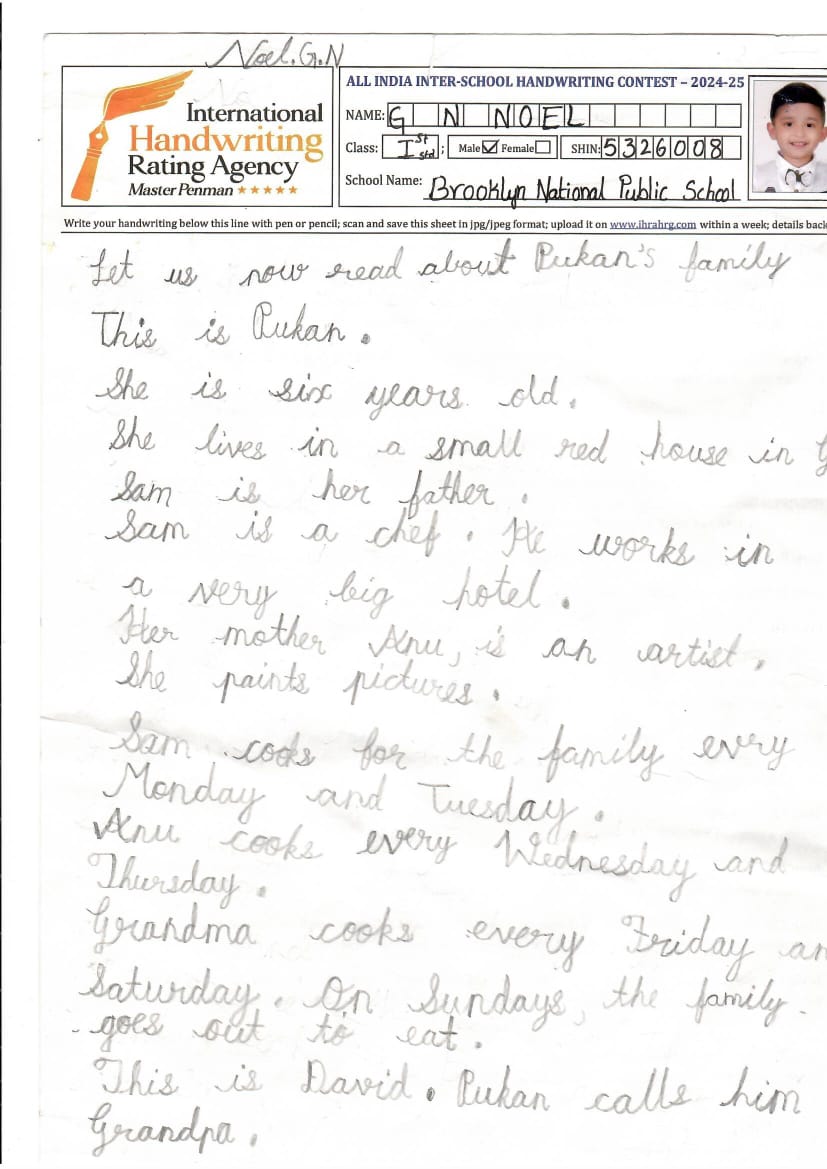 Noel.G.N
International
Handwriting
Rating Agency
Master Penman ★★★★★
ALL INDIA INTER-SCHOOL HANDWRITING CONTEST – 2024-25
NAME: G N NOEL
Class: Ist std ; Male ☑ Female ☐ SHIN: 5326008
School Name: Brooklyn National Public School
Write your handwriting below this line with pen or pencil; scan and save this sheet in jpg/jpeg format; upload it on www.ihrahrg.com within a week; details back
Let us now read about Pukan's family
This is Pukan.
She is six years old.
She lives in a small red house in
Sam is her father.
Sam is a chef. He works in
a very big hotel.
Her mother Anu, is an artist.
She paints pictures.
Sam cooks for the family every
Monday and Tuesday.
Anu cooks every Wednesday and
Thursday.
Grandma cooks every Friday an
Saturday. On Sundays, the family
goes out to eat.
This is David. Pukan calls him
Grandpa.